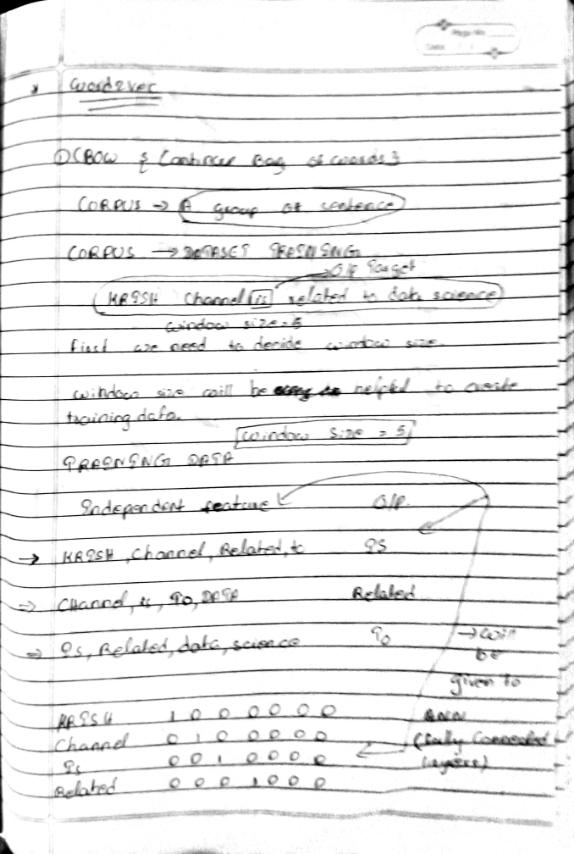 Page No.
Date
* Word2vec
① CBOW { Continuer Bag of words }
CORPUS → A group of sentence
CORPUS → DATASET TRAINING
→ O/P Target
KRISH Channel is related to data science
window size = 5
First we need to decide window size
window size will be helpful to create
training data.
window size = 5
TRAINING DATA
Independent feature O/P.
→ KRISH, Channel, Related, to IS
⇒ CHannel, is, To, DATA Related
⇒ Is, Related, data, science To → will
be
given to
KRISH 1 0 0 0 0 0 0 ANN
Channel 0 1 0 0 0 0 0 (Fully Connected
Is 0 0 1 0 0 0 0 Layers)
Related 0 0 0 1 0 0 0